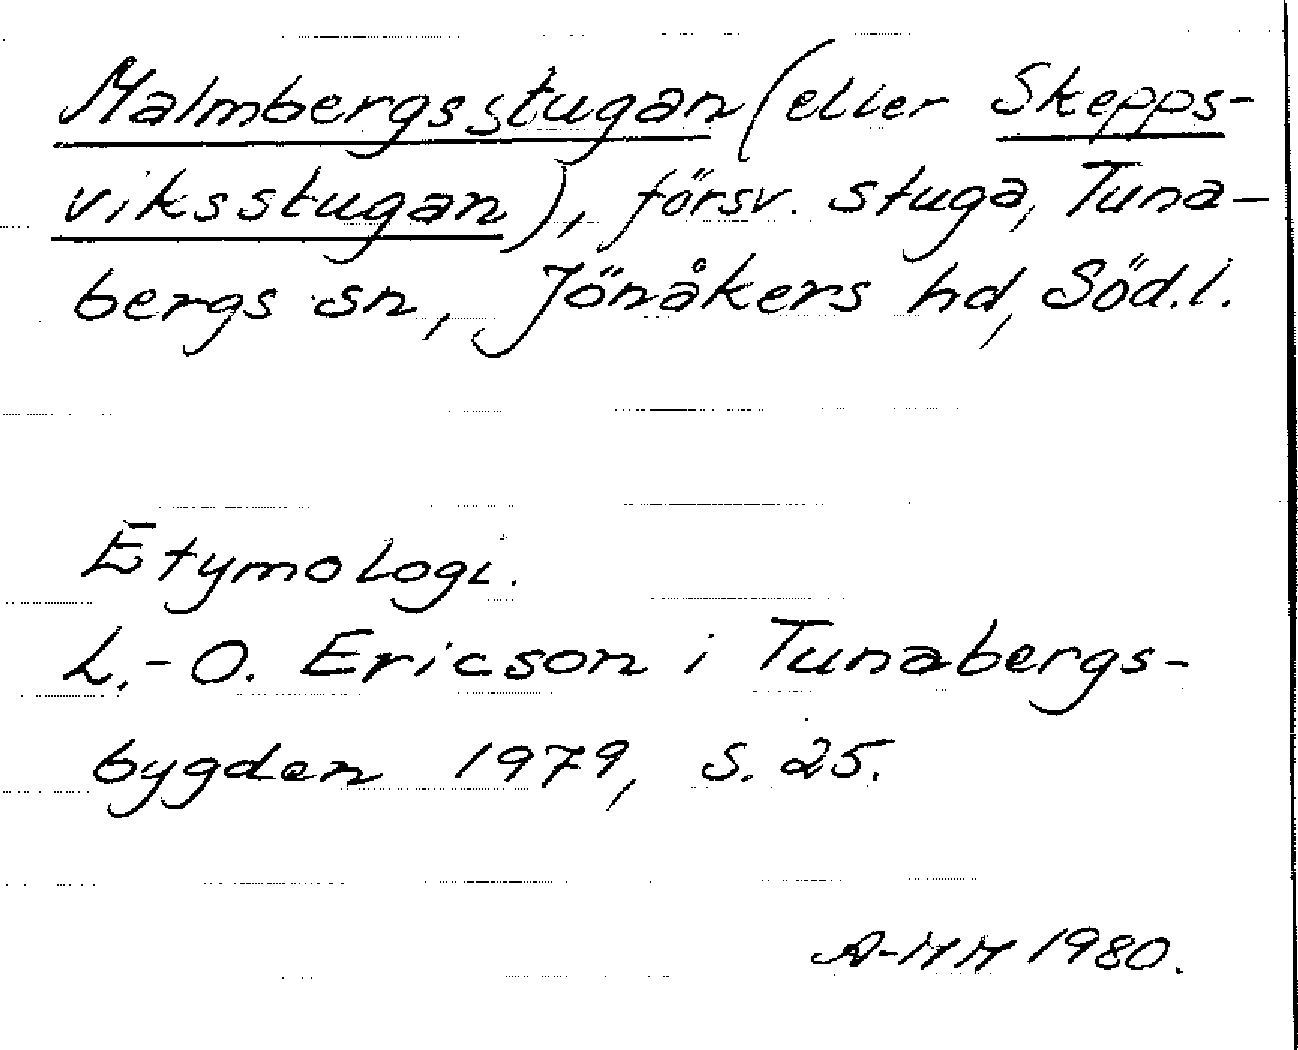 Malmbergsstugan (eller Skepps-
viksstugan), försv. stuga, Tuna-
bergs sn, Jönåkers hd, Söd.l.
Etymologi.
L.-O. Ericson i Tunabergs-
bygden 1979, s. 25.
A-MH 1980.